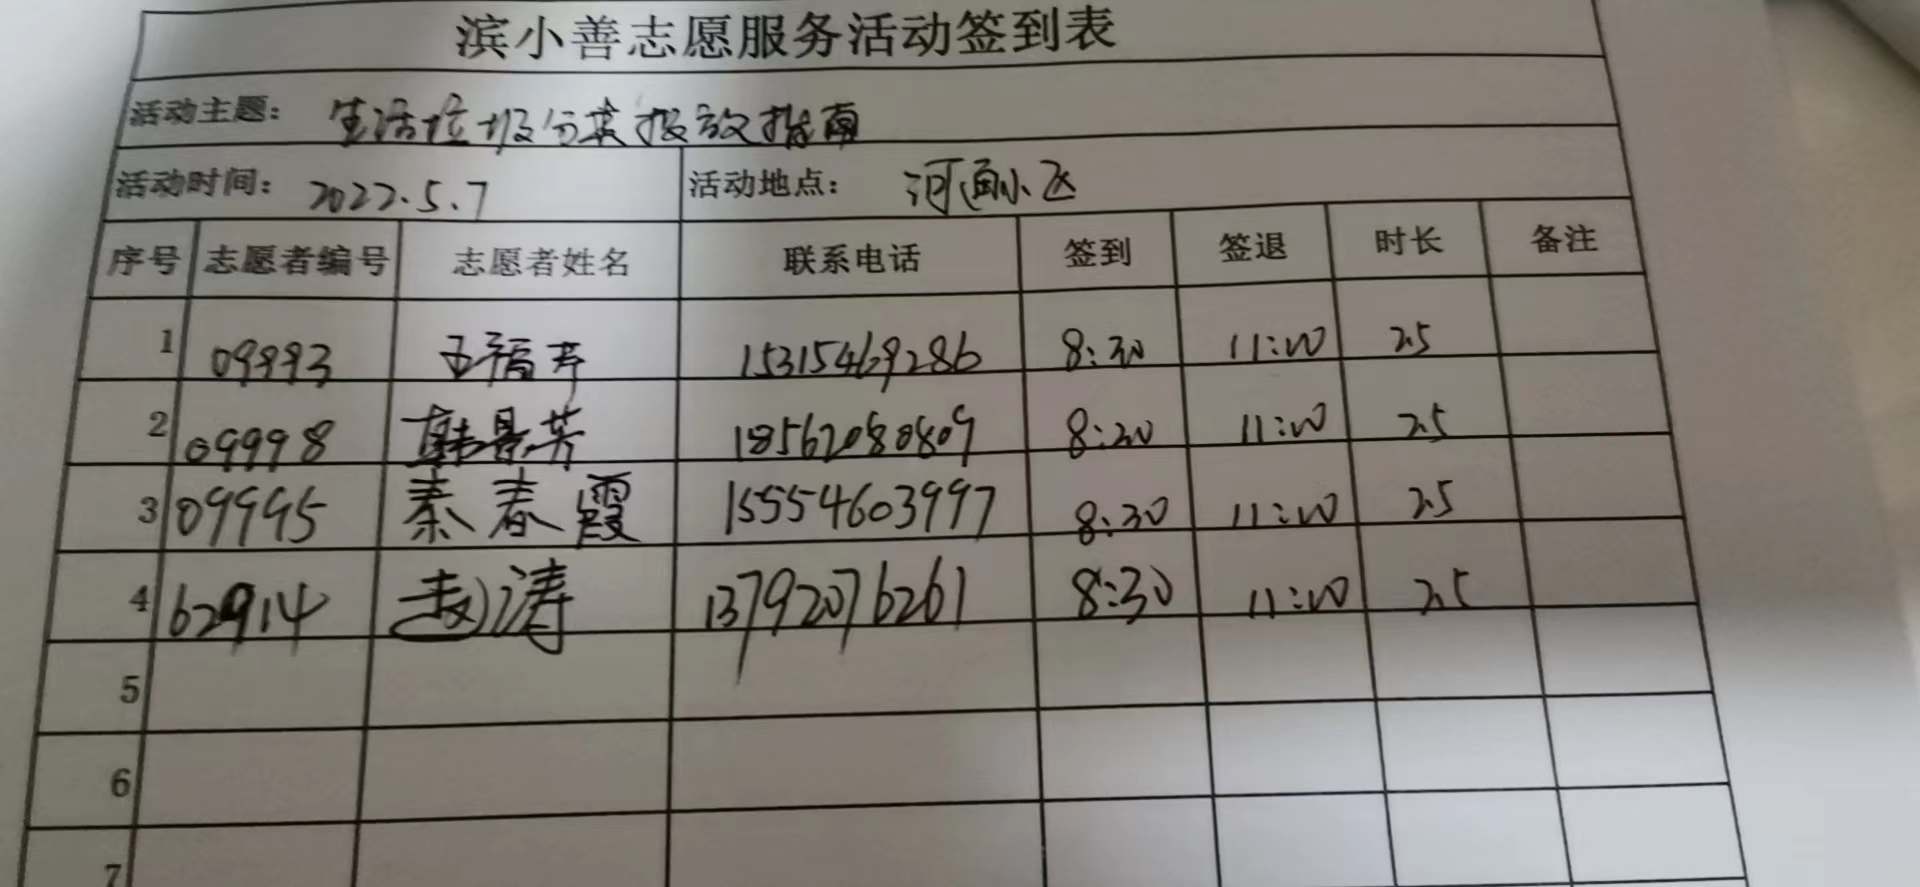 滨小善志愿服务活动签到表
活动主题: 生活垃圾分类投放指南
活动时间: 2022.5.7 活动地点: 河画小区
序号 志愿者编号 志愿者姓名 联系电话 签到 签退 时长 备注
1 09993 王福芹 15315469286 8:30 11:00 2.5
2 09998 韩景芳 18562080809 8:30 11:00 2.5
3 09995 秦春霞 15554603997 8:30 11:00 2.5
4 62914 赵涛 13792076261 8:30 11:00 2.5
5
6
7